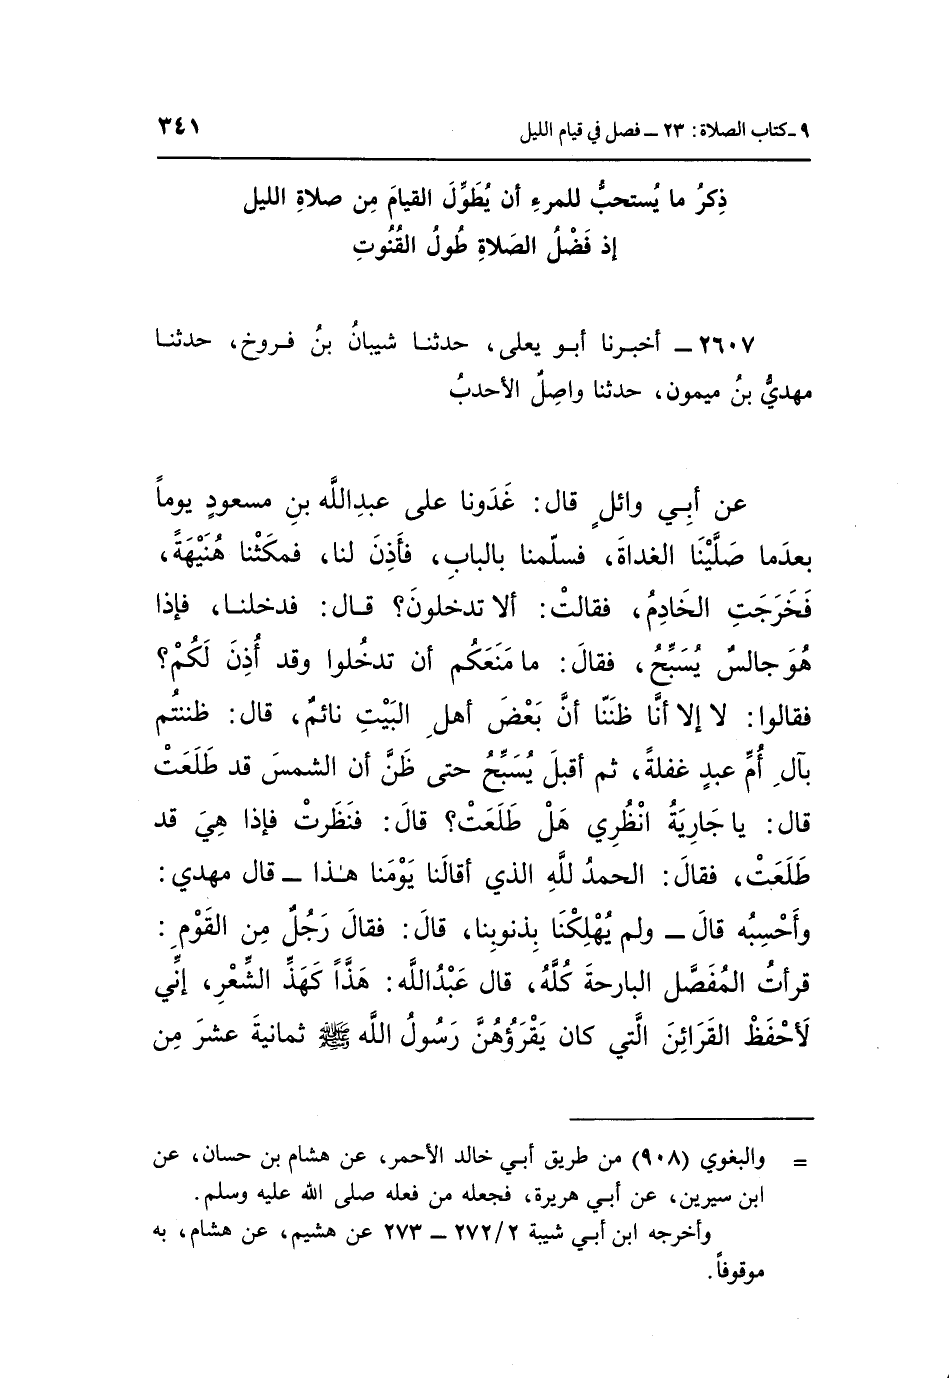 ٩ـ كتاب الصلاة: ٢٣ ــ فصل في قيام الليل ٣٤١
ذِكرُ ما يُستحبُّ للمرءِ أن يُطَوِّلَ القيامَ مِن صلاةِ الليل
إذ فَضْلُ الصَلاةِ طُولُ القُنُوتِ
٢٦٠٧ ــ أخبرنا أبو يعلى، حدثنا شيبانُ بنُ فروخ، حدثنا
مهديُّ بنُ ميمون، حدثنا واصِلٌ الأحدبُ
عن أبي وائلٍ قال: غَدَونا على عبدِاللَّه بنِ مسعودٍ يوماً
بعدَما صَلَّيْنَا الغداةَ، فسلّمنا بالبابِ، فأَذِنَ لنا، فمكَثْنا هُنَيْهَةً،
فَخَرَجَتِ الخَادِمُ، فقالتْ: ألا تدخلون؟ قال: فدخلنا، فإذا
هُوَ جالسٌ يُسَبِّحُ، فقالَ: ما مَنَعَكُم أن تدخُلوا وقد أُذِنَ لَكُمْ؟
فقالوا: لا إلا أنَّا ظنَنّا أنَّ بَعْضَ أهلِ البَيْتِ نائمٌ، قال: ظننتُم
بآلِ أُمِّ عبدٍ غفلةً، ثم أقبلَ يُسَبِّحُ حتى ظَنَّ أن الشمسَ قد طَلَعَتْ
قال: يا جَارِيَةُ انْظُرِي هَلْ طَلَعَتْ؟ قالَ: فنَظَرتْ فإذا هِيَ قد
طَلَعَتْ، فقالَ: الحمدُ للَّهِ الذي أقالَنا يَوْمَنا هـٰذا ــ قال مهدي:
وأَحْسِبُه قالَ ــ ولم يُهْلِكْنَا بِذنوبِنا، قالَ: فقالَ رَجُلٌ مِن القَوْمِ:
قرأتُ المُفَصَّل البارحةَ كُلَّهُ، قال عَبْدُاللَّه: هَذَّاً كَهَذِّ الشِّعْرِ، إنِّي
لَأحْفَظُ القَرَائِنَ الَّتي كان يَقْرَؤُهُنَّ رَسُولُ اللَّه ﷺ ثمانيةَ عشرَ مِن
= والبغوي (٩٠٨) من طريق أبي خالد الأحمر، عن هشام بن حسان، عن
ابن سيرين، عن أبي هريرة، فجعله من فعله صلى الله عليه وسلم.
وأخرجه ابن أبي شيبة ٢/٢٧٢ ــ ٢٧٣ عن هشيم، عن هشام، به
موقوفاً.